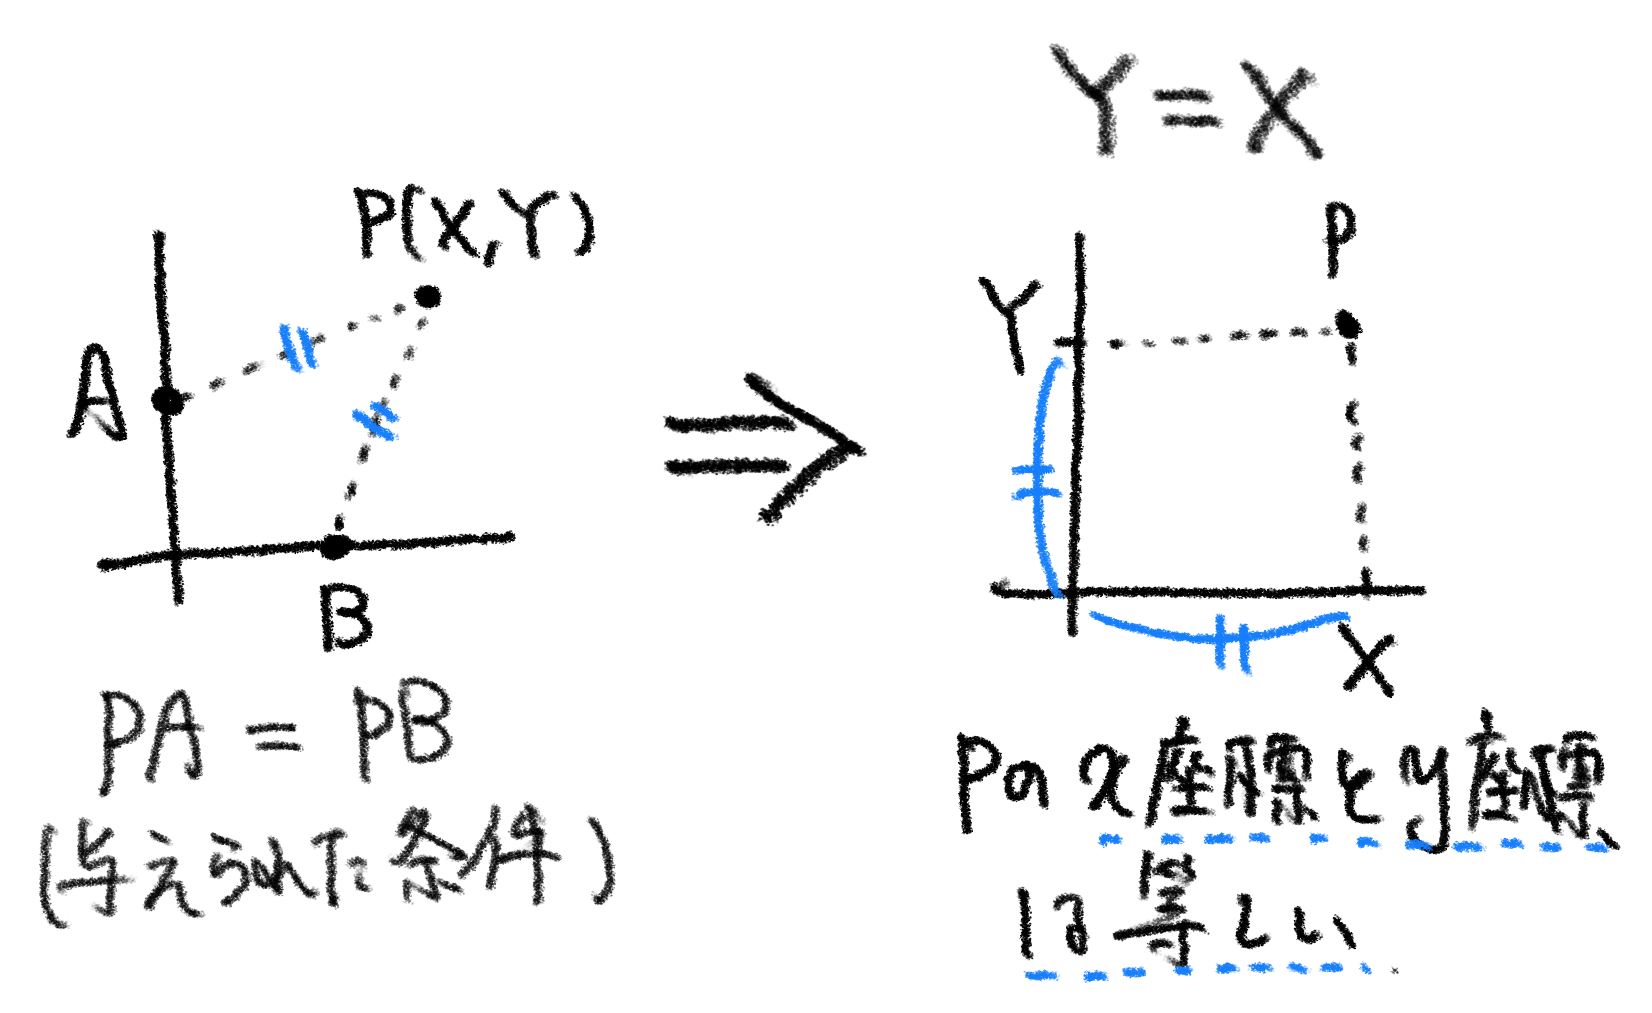 P(X,Y)
A
B
PA = PB
(与えられた条件)
⇒
Y=X
P
Y
X
Pのx座標とy座標
は等しい